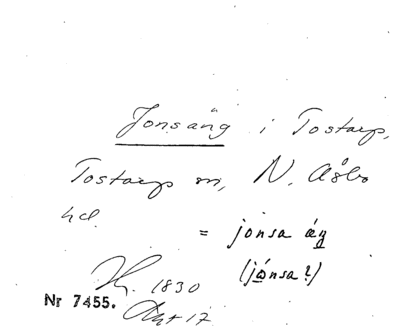 Jonsäng i Tostarp,
Tostarp sn, N. Åsbo
hd.
= jonsa äg
(jonsa?)
1830
Nr 7455. Akt 17